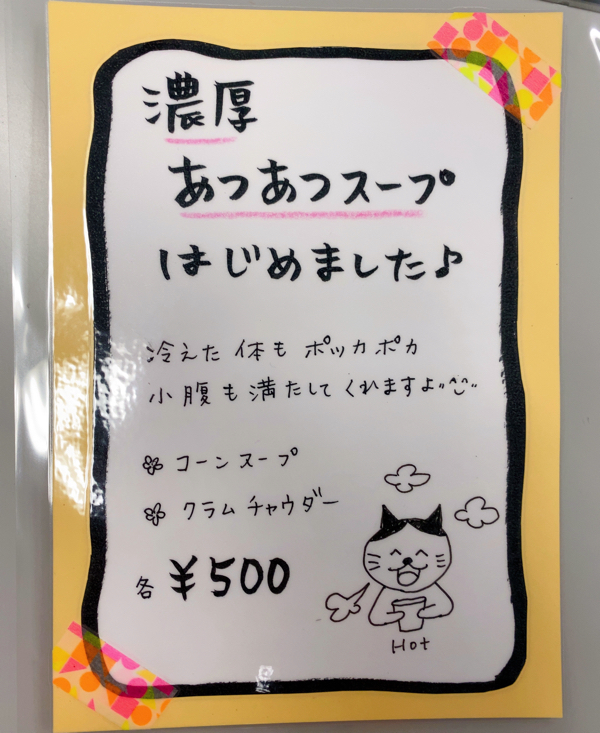 濃厚
あつあつスープ
はじめました♪
冷えた体もポッカポカ
小腹も満たしてくれますよ"^^"
コーンスープ
クラムチャウダー
各 ¥500
Hot